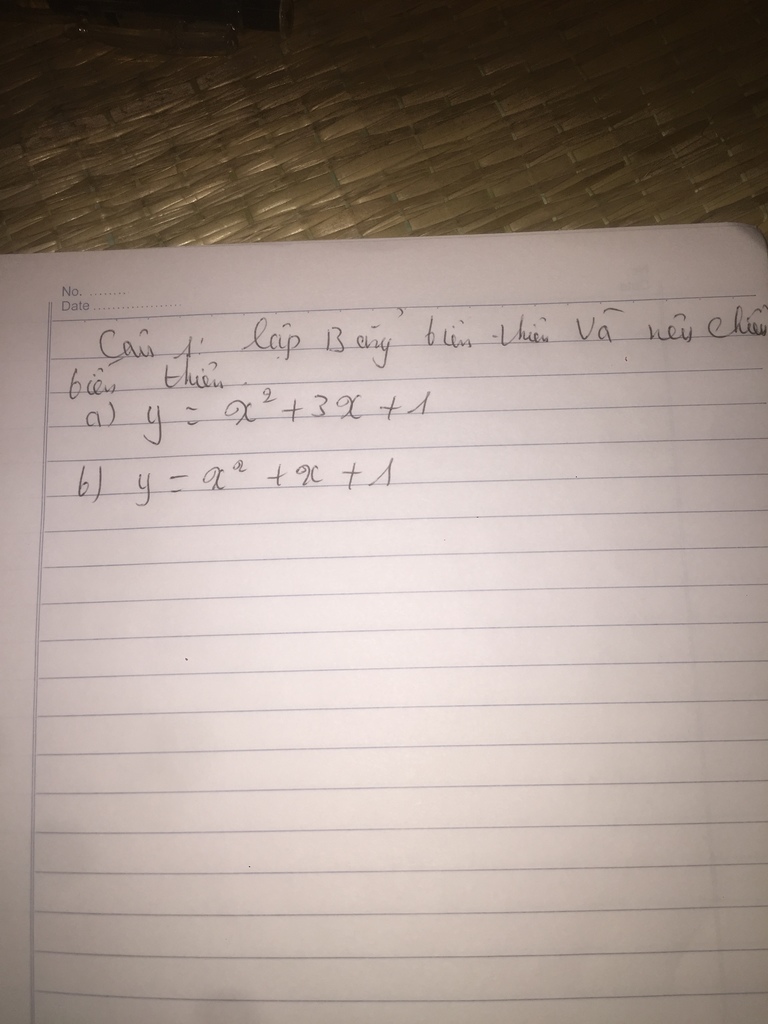 No. ........
Date ...................
Câu 1: lập Bảng biến thiên Và nêu chiều
biến thiên.
a) y = x² + 3x + 1
b) y = x² + x + 1